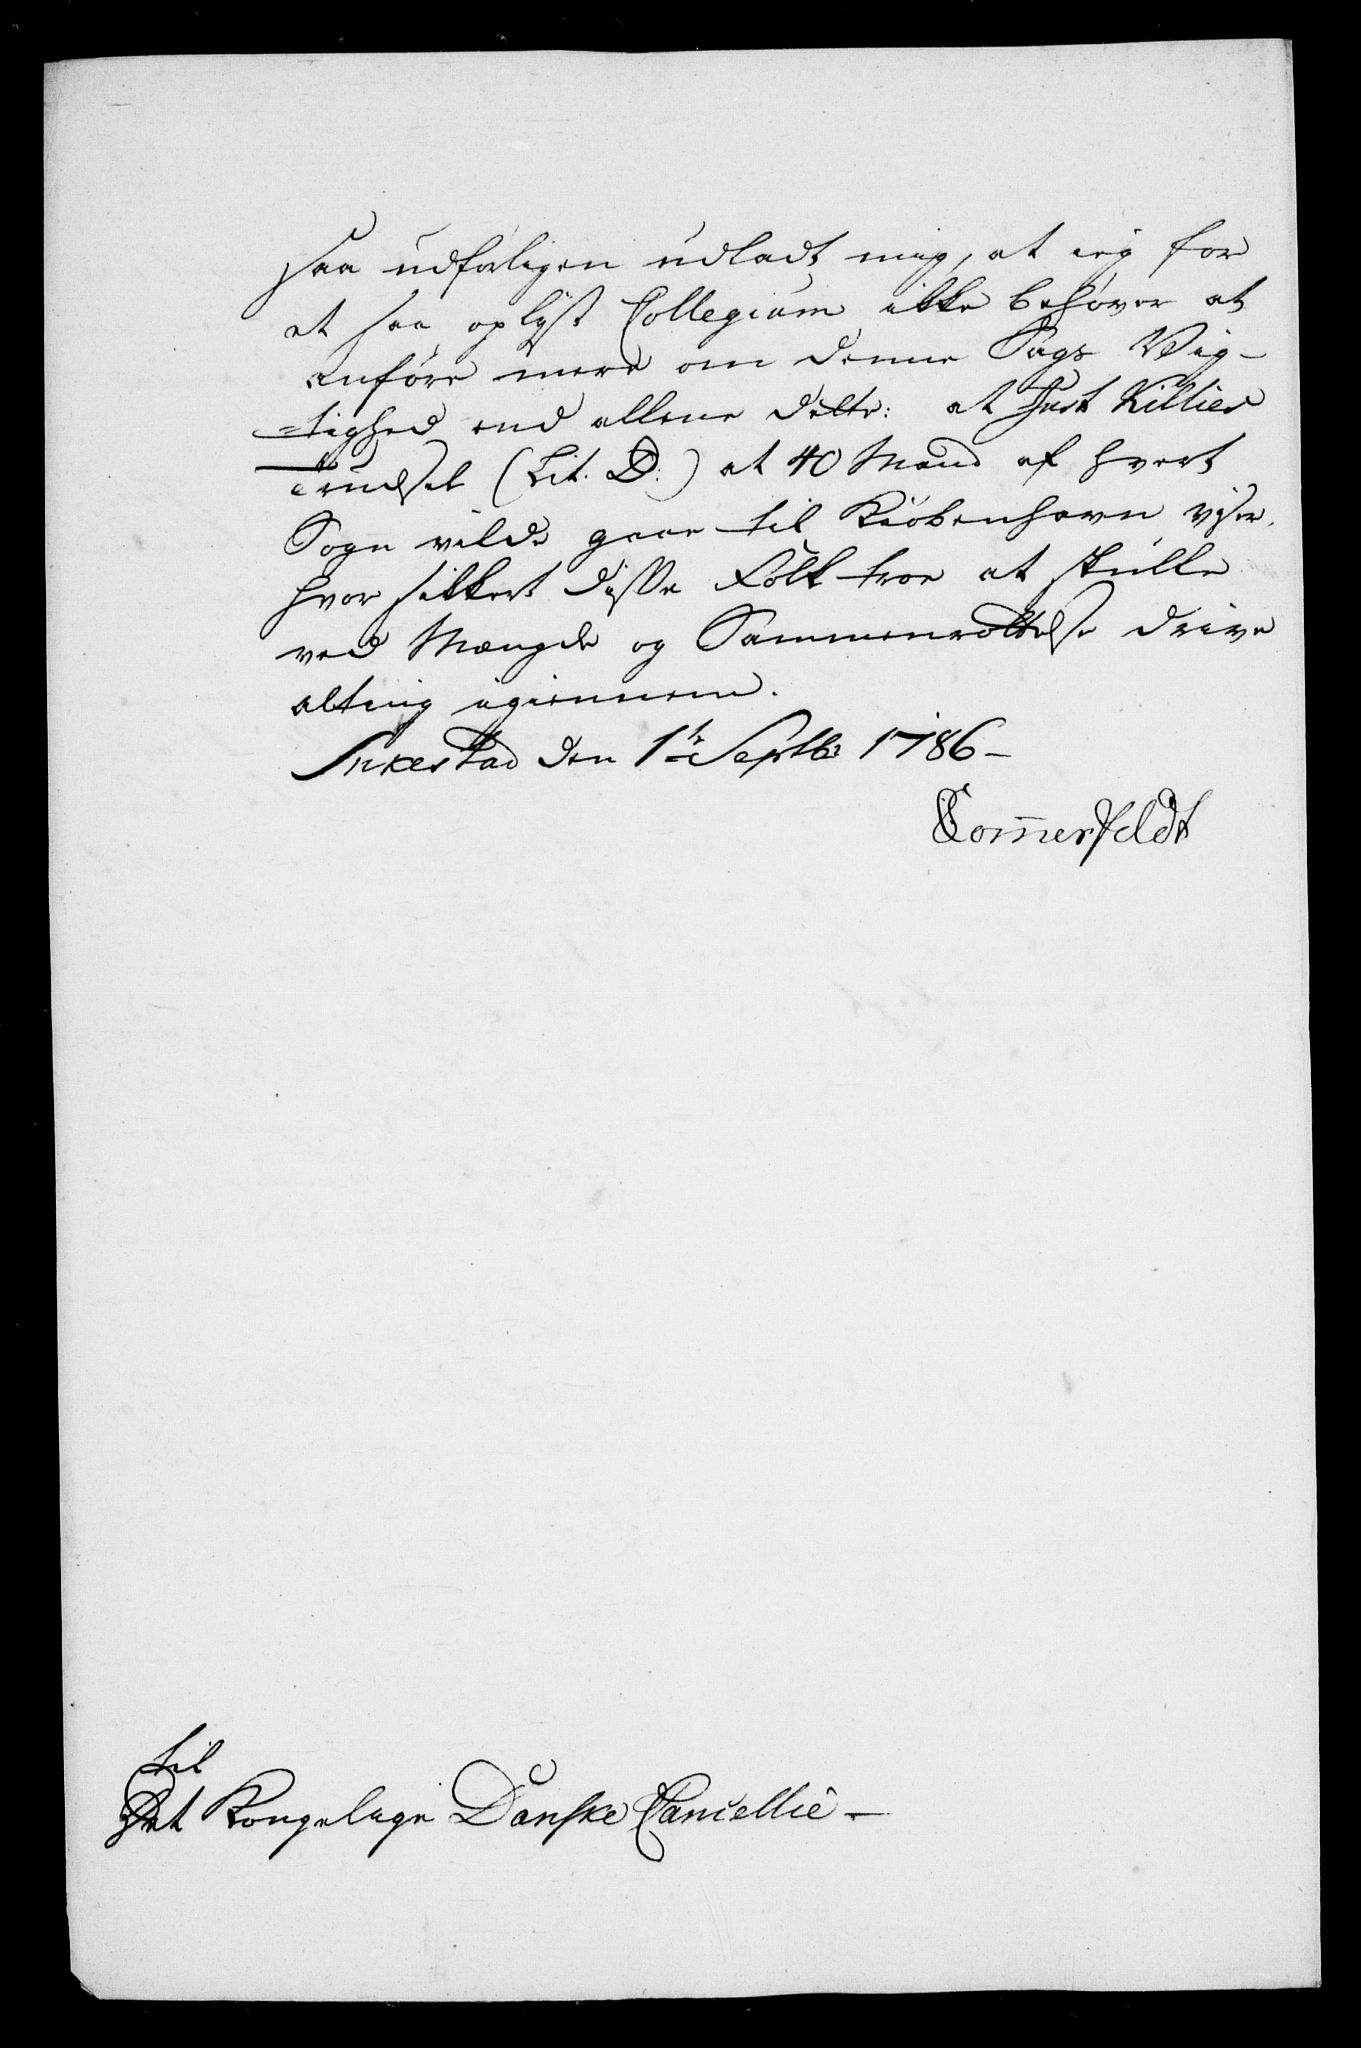 saa udførligen udladt mig, at ieg for
et saa oplyst Collegium ikke behøver at
anføre mere om denne Sags Vig-
=tighed end allene dette: at Just Killies
Trudsel (Lit. D:) at 40 Mand af hvert
Sogn vilde gaae til Kiøbenhavn viser,
hvor sikkert disse Folk troe at skulle
ved Mængde og Sammenrottelse drive
alting igiennem.
Sukestad den 1te Septbr 1786 –
Sommerfeldt
til
Det Kongelige Danske Cancellie –